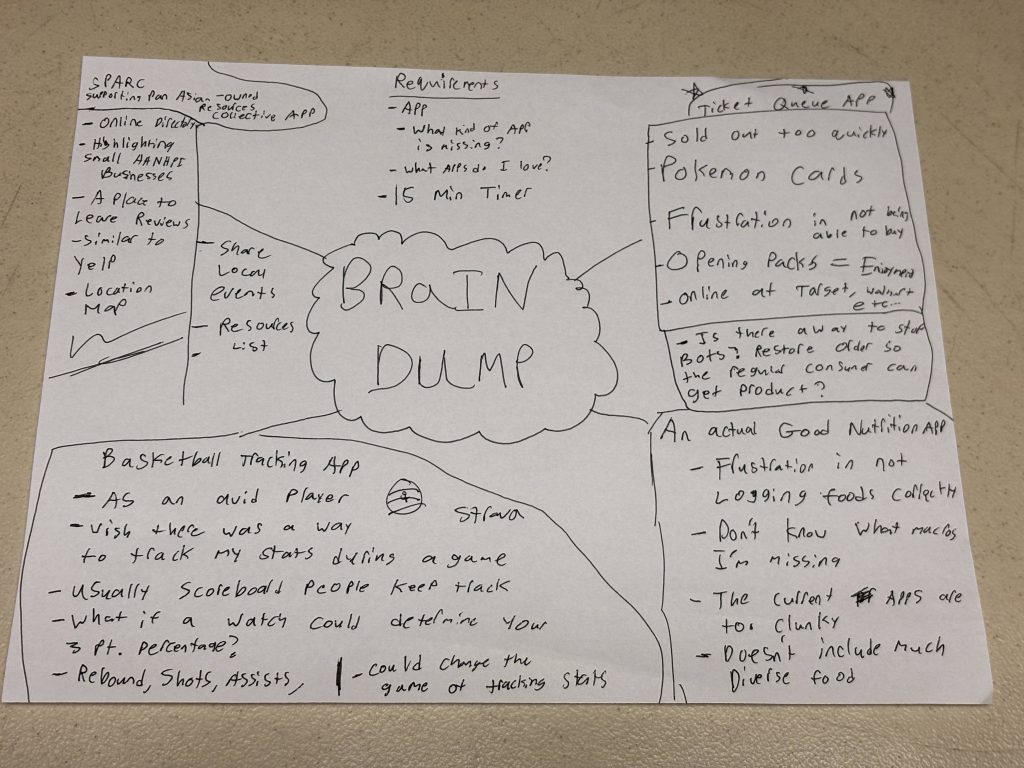 SPARC
Supporting Pan Asian-owned
Resources
Collective APP
- Online Directory
- Highlighting
Small AANHPI
Businesses
- A Place to
Leave Reviews
- Similar to
Yelp
- Location
Map
- Share
Local
events
- Resources
List
-
Requirements
- APP
- What kind of APP
is missing?
- What Apps do I love?
- 15 Min Timer
Ticket Queue APP
- Sold out too quickly
- Pokemon Cards
- Frustration in not being
able to buy
- Opening Packs = Enjoyment
- online at Target, Walmart
etc...
- Is there a way to stop
Bots? Restore Order so
the regular consumer can
get product?
BRaIN
DUMP
Basketball Tracking App
- As an avid Player
Strava
- wish there was a way
to track my stats during a game
- Usually Scoreboard People keep track
- What if a watch could determine your
3 Pt. Percentage?
- Rebound, Shots, Assists,
- could change the
game of tracking stats
An actual Good Nutrition APP
- Frustration in not
Logging foods correctly
- Don't know what macros
I'm missing
- The current Apps are
too clunky
- Doesn't include much
Diverse food